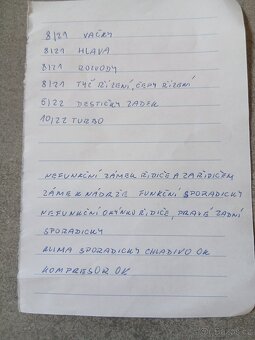 8/21 VAČKY
8/21 HLAVA
8/21 ROZVODY
8/21 TYČ ŘÍZENÍ, ČEPY ŘÍZENÍ
5/22 DESTIČKY ZADEK
10/22 TURBO
NEFUNKČNÍ ZÁMEK ŘIDIČE A ZA ŘIDIČEM
ZÁMEK NÁDRŽE FUNKČNÍ SPORADICKY
NEFUNKČNÍ OKÝNKO ŘIDIČE, PRAVÉ ZADNÍ
SPORADICKY
KLIMA SPORADICKY CHLADIVO OK
KOMPRESOR OK